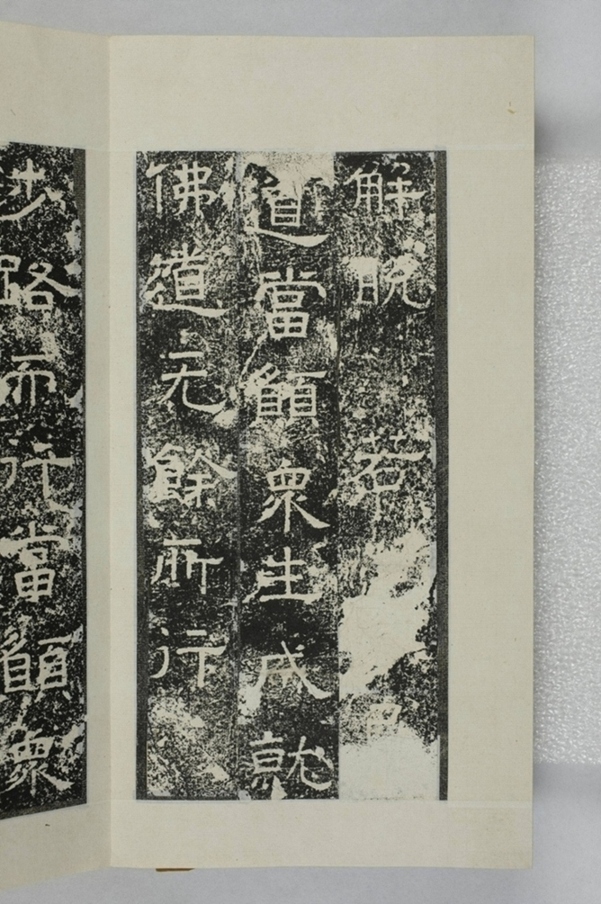 解脫若
道當願衆生成就
佛道无餘所行
涉路而行當願衆